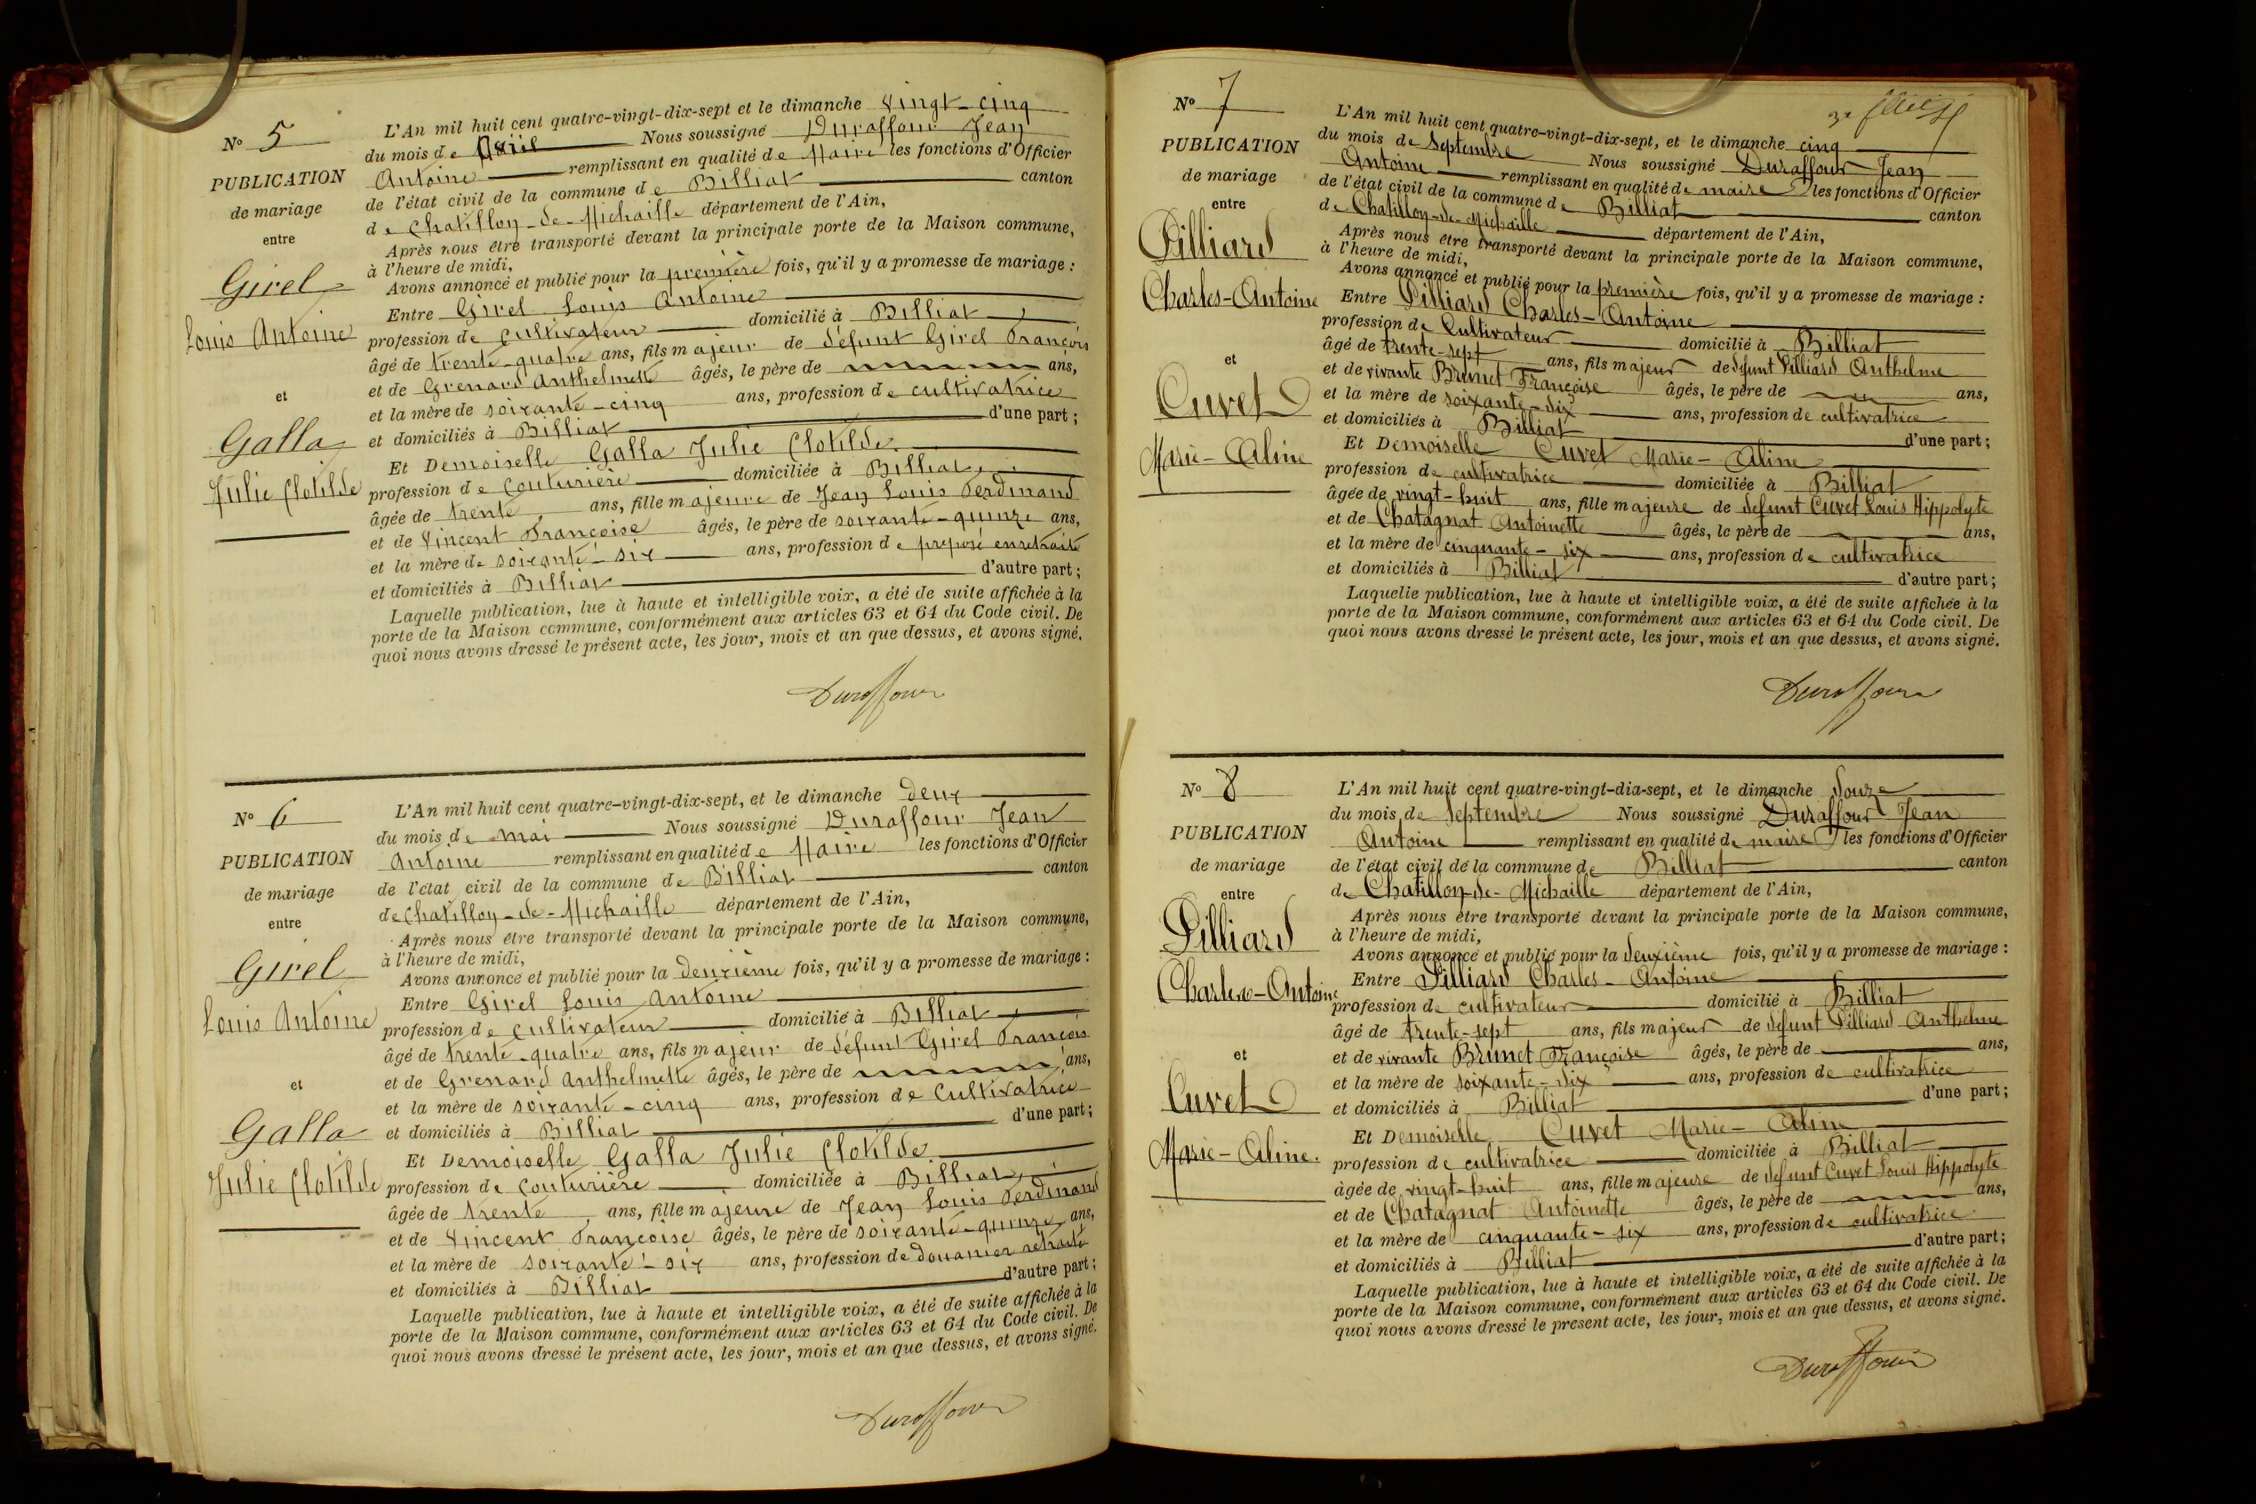 N° 5
PUBLICATION
de mariage
entre
Girel
Louis Antoine
et
Galla
Julie Clotilde
L'An mil huit cent quatre-vingt-dix-sept et le dimanche vingt-cinq
du mois de Avril Nous soussigné Duraffour Jean
Antoine remplissant en qualité de Maire les fonctions d'Officier
de l'état civil de la commune de Billiat canton
de Chatillon-de-Michaille département de l'Ain,
Après nous être transporté devant la principale porte de la Maison commune,
à l'heure de midi,
Avons annoncé et publié pour la première fois, qu'il y a promesse de mariage :
Entre Girel Louis Antoine
profession de cultivateur domicilié à Billiat
âgé de trente-quatre ans, fils majeur de défunt Girel François
et de Grenard Anthelmette âgés, le père de ans,
et la mère de soixante-cinq ans, profession de cultivatrice
et domiciliés à Billiat d'une part ;
Et Demoiselle Galla Julie Clotilde
profession de couturière domiciliée à Billiat
âgée de trente ans, fille majeure de Jean Louis Ferdinand
et de Vincent Françoise âgés, le père de soixante-quinze ans,
et la mère de soixante-six ans, profession de préposé en retraite
et domiciliés à Billiat d'autre part ;
Laquelle publication, lue à haute et intelligible voix, a été de suite affichée à la
porte de la Maison commune, conformément aux articles 63 et 64 du Code civil. De
quoi nous avons dressé le présent acte, les jour, mois et an que dessus, et avons signé.
Duraffour
N° 6
PUBLICATION
de mariage
entre
Girel
Louis Antoine
et
Galla
Julie Clotilde
L'An mil huit cent quatre-vingt-dix-sept, et le dimanche deux
du mois de mai Nous soussigné Duraffour Jean
Antoine remplissant en qualité de Maire les fonctions d'Officier
de l'état civil de la commune de Billiat canton
de Chatillon-de-Michaille département de l'Ain,
Après nous être transporté devant la principale porte de la Maison commune,
à l'heure de midi,
Avons annoncé et publié pour la deuxième fois, qu'il y a promesse de mariage :
Entre Girel Louis Antoine
profession de cultivateur domicilié à Billiat
âgé de trente-quatre ans, fils majeur de défunt Girel François
et de Grenard Anthelmette âgés, le père de ans,
et la mère de soixante-cinq ans, profession de Cultivatrice
et domiciliés à Billiat d'une part ;
Et Demoiselle Galla Julie Clotilde
profession de couturière domiciliée à Billiat
âgée de trente ans, fille majeure de Jean Louis Ferdinand
et de Vincent Françoise âgés, le père de soixante-quinze ans,
et la mère de soixante-six ans, profession de douanier retraité
et domiciliés à Billiat d'autre part ;
Laquelle publication, lue à haute et intelligible voix, a été de suite affichée à la
porte de la Maison commune, conformément aux articles 63 et 64 du Code civil. De
quoi nous avons dressé le présent acte, les jour, mois et an que dessus, et avons signé.
Duraffour
N° 7
PUBLICATION
de mariage
entre
Pilliard
Charles-Antoine
et
Cuvet
Marie-Aline
L'An mil huit cent quatre-vingt-dix-sept, et le dimanche cinq
du mois de Septembre Nous soussigné Duraffour Jean
Antoine remplissant en qualité de maire les fonctions d'Officier
de l'état civil de la commune de Billiat canton
de Chatillon-de-Michaille département de l'Ain,
Après nous être transporté devant la principale porte de la Maison commune,
à l'heure de midi,
Avons annoncé et publié pour la première fois, qu'il y a promesse de mariage :
Entre Pilliard Charles-Antoine
profession de Cultivateur domicilié à Billiat
âgé de trente-sept ans, fils majeur de défunt Pilliard Anthelme
et de vivante Brunet Françoise âgés, le père de ans,
et la mère de soixante-dix ans, profession de cultivatrice
et domiciliés à Billiat d'une part ;
Et Demoiselle Cuvet Marie-Aline
profession de cultivatrice domiciliée à Billiat
âgée de vingt-huit ans, fille majeure de defunt Cuvet Louis Hippolyte
et de Chatagnat Antoinette âgés, le père de ans,
et la mère de cinquante-six ans, profession de cultivatrice
et domiciliés à Billiat d'autre part ;
Laquelle publication, lue à haute et intelligible voix, a été de suite affichée à la
porte de la Maison commune, conformément aux articles 63 et 64 du Code civil. De
quoi nous avons dressé le présent acte, les jour, mois et an que dessus, et avons signé.
Duraffour
N° 8
PUBLICATION
de mariage
entre
Pilliard
Charles-Antoine
et
Cuvet
Marie-Aline.
L'An mil huit cent quatre-vingt-dix-sept, et le dimanche douze
du mois de Septembre Nous soussigné Duraffour Jean
Antoine remplissant en qualité de maire les fonctions d'Officier
de l'état civil de la commune de Billiat canton
de Chatillon-de-Michaille département de l'Ain,
Après nous être transporté devant la principale porte de la Maison commune,
à l'heure de midi,
Avons annoncé et publié pour la deuxième fois, qu'il y a promesse de mariage :
Entre Pilliard Charles-Antoine
profession de cultivateur domicilié à Billiat
âgé de trente-sept ans, fils majeur de défunt Pilliard Anthelme
et de vivante Brunet Françoise âgés, le père de ans,
et la mère de soixante-dix ans, profession de cultivatrice
et domiciliés à Billiat d'une part ;
Et Demoiselle Cuvet Marie-Aline
profession de cultivatrice domiciliée à Billiat
âgée de vingt-huit ans, fille majeure de défunt Cuvet Louis Hippolyte
et de Chatagnat Antoinette âgés, le père de ans,
et la mère de cinquante-six ans, profession de cultivatrice
et domiciliés à Billiat d'autre part ;
Laquelle publication, lue à haute et intelligible voix, a été de suite affichée à la
porte de la Maison commune, conformément aux articles 63 et 64 du Code civil. De
quoi nous avons dressé le présent acte, les jour, mois et an que dessus, et avons signé.
Duraffour